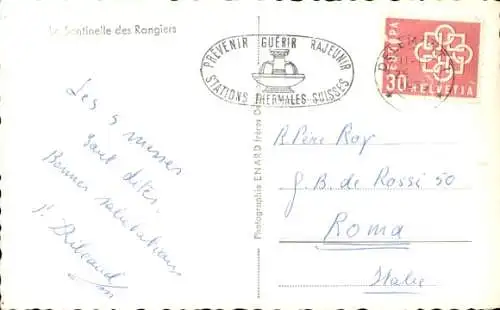 La Sentinelle des Rangiers
PRÉVENIR GUÉRIR RAJEUNIR
STATIONS THERMALES SUISSES
EUROPA
30 HELVETIA
Les 5 messes
sont dites.
Bonnes salutations
Photographie ENARD frères
R Père Roy
G. B. de Rossi 50
Roma
Italie